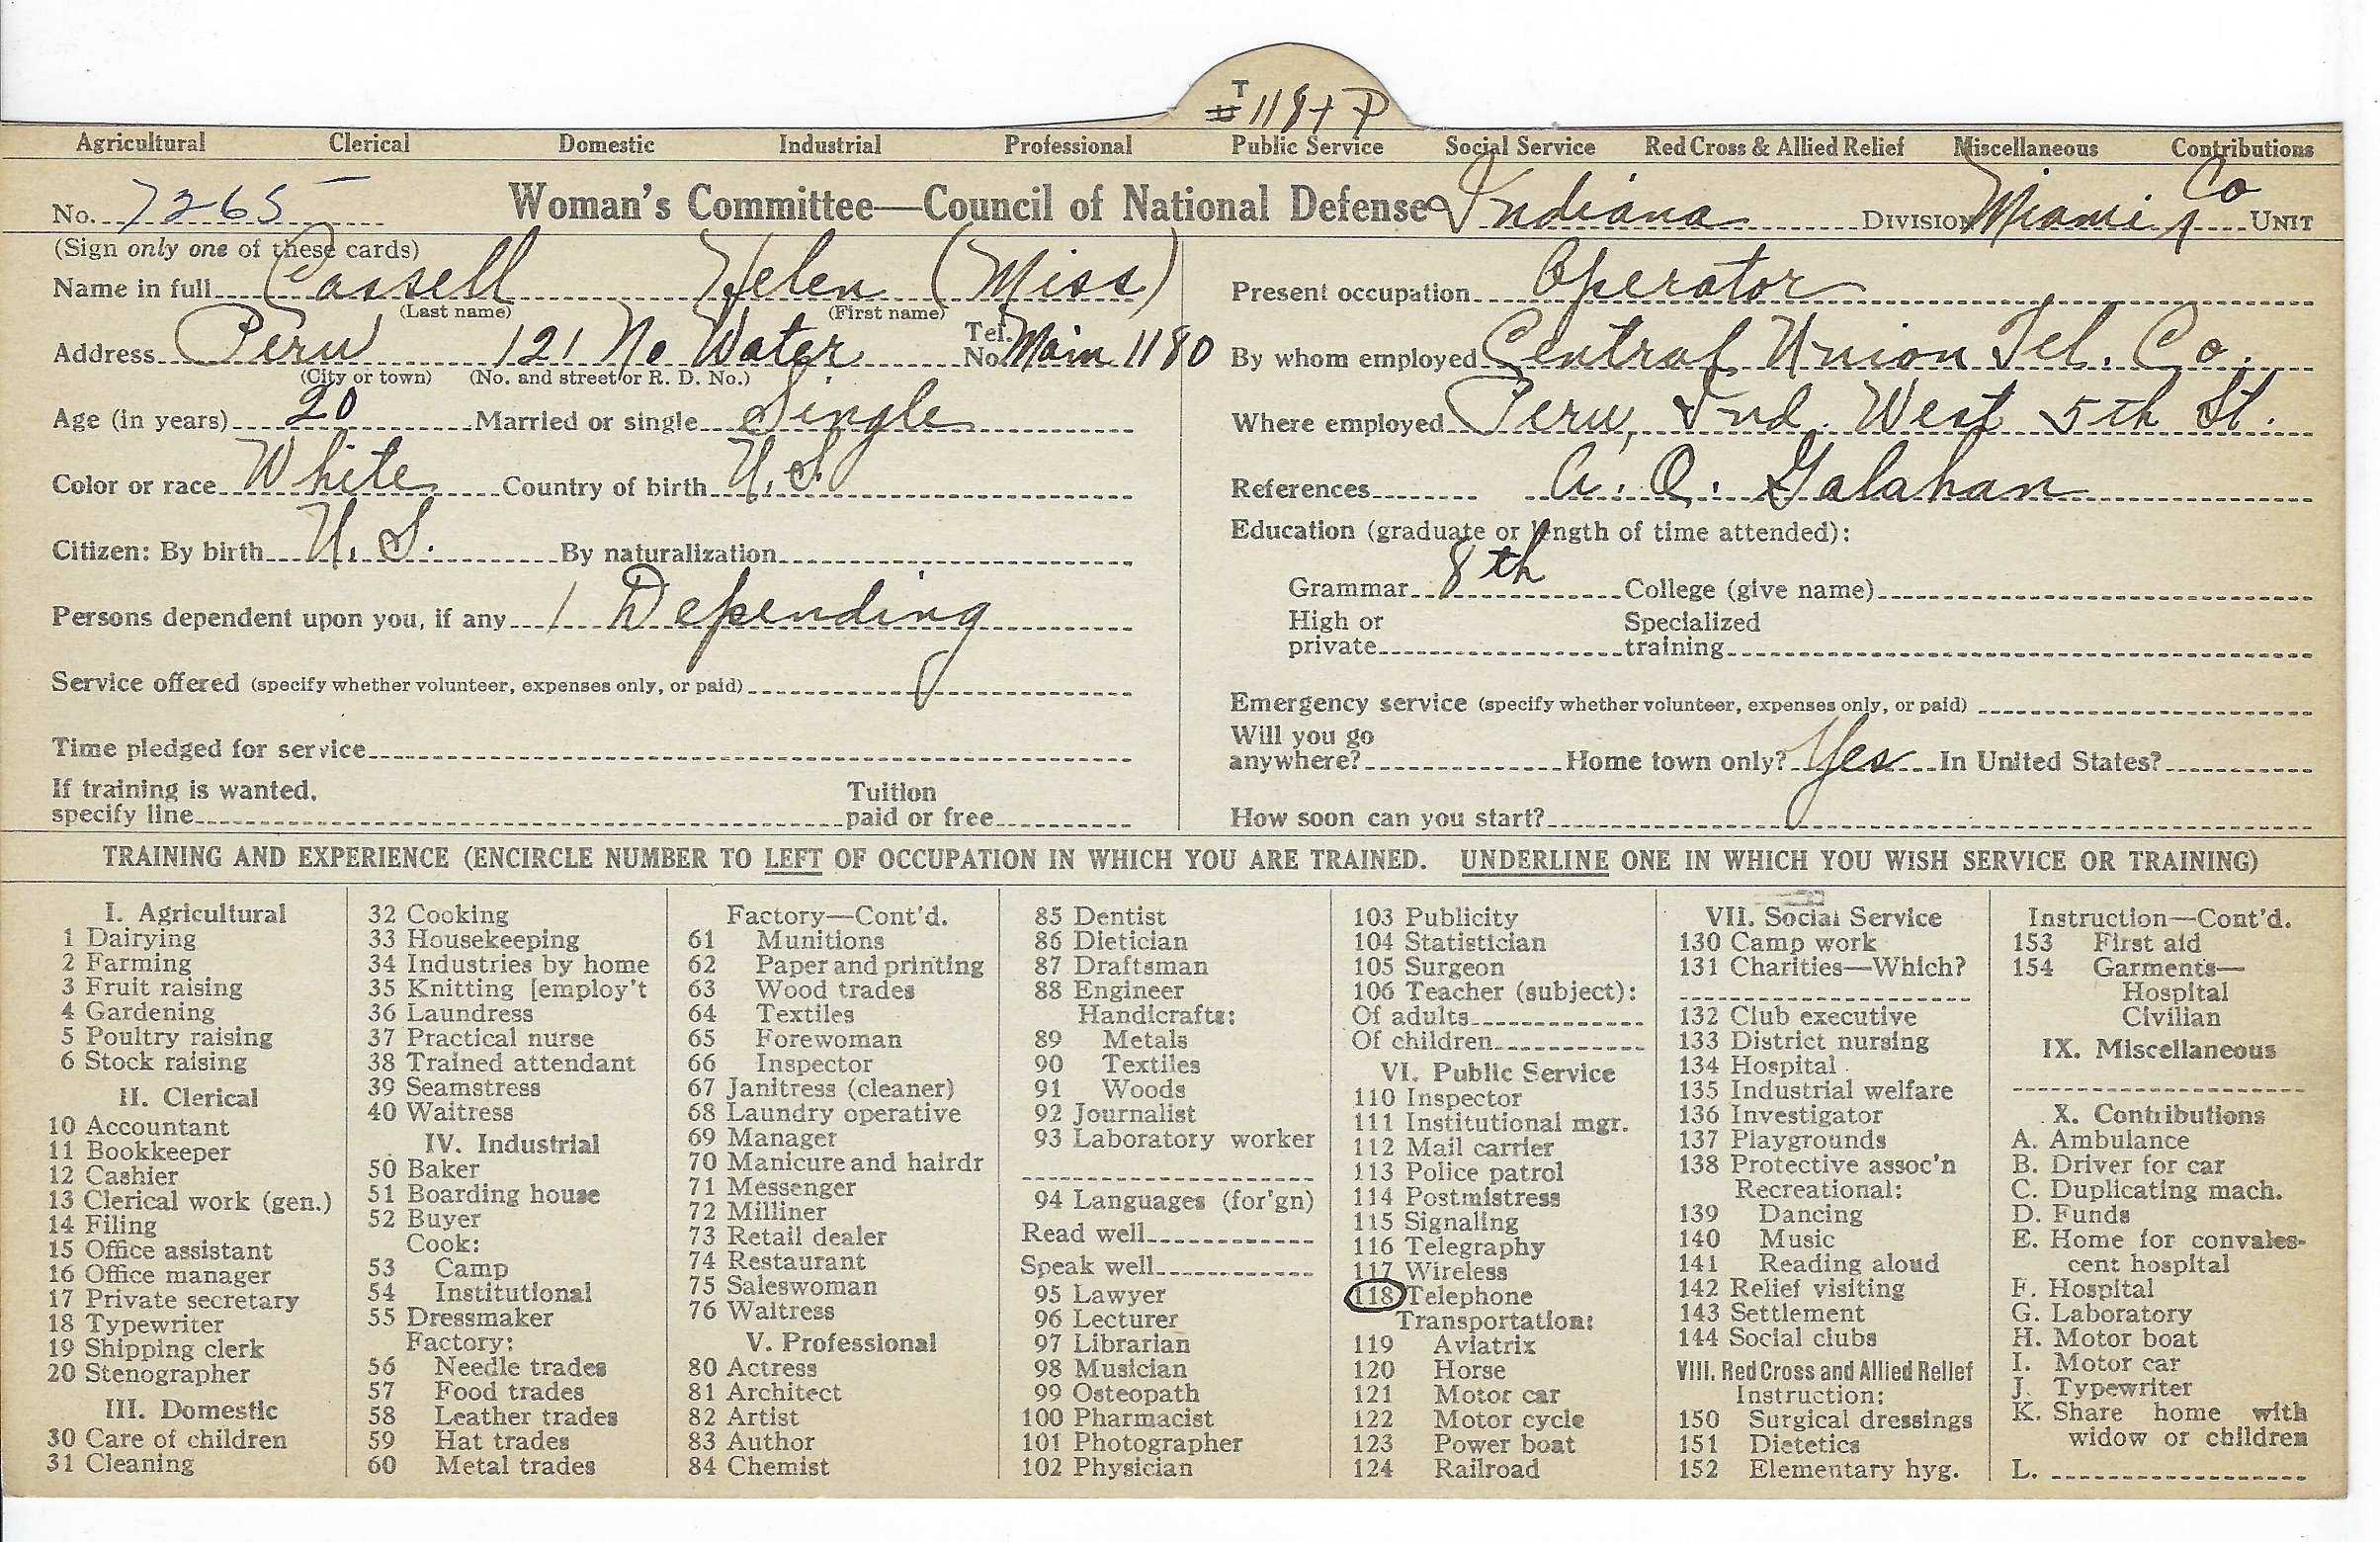 T
# 118 + P
Agricultural Clerical Domestic Industrial Professional Public Service Social Service Red Cross & Allied Relief Miscellaneous Contributions
No. 7265 Woman's Committee—Council of National Defense Indiana DIVISION Miami Co UNIT
(Sign only one of these cards)
Name in full Cassell Helen (Miss)
(Last name) (First name)
Address Peru 121 No Water Tel. No. Main 1180
(City or town) (No. and street or R. D. No.)
Age (in years) 20 Married or single Single
Color or race White Country of birth U.S.
Citizen: By birth U. S. By naturalization
Persons dependent upon you, if any 1 Depending
Service offered (specify whether volunteer, expenses only, or paid)
Time pledged for service
If training is wanted, specify line Tuition paid or free
Present occupation Operator
By whom employed Central Union Tel. Co.
Where employed Peru, Ind. West 5th St.
References A. Q. Galahan
Education (graduate or length of time attended):
Grammar 8th College (give name)
High or private Specialized training
Emergency service (specify whether volunteer, expenses only, or paid)
Will you go anywhere? Home town only? Yes In United States?
How soon can you start?
TRAINING AND EXPERIENCE (ENCIRCLE NUMBER TO LEFT OF OCCUPATION IN WHICH YOU ARE TRAINED. UNDERLINE ONE IN WHICH YOU WISH SERVICE OR TRAINING)
I. Agricultural
1 Dairying
2 Farming
3 Fruit raising
4 Gardening
5 Poultry raising
6 Stock raising
II. Clerical
10 Accountant
11 Bookkeeper
12 Cashier
13 Clerical work (gen.)
14 Filing
15 Office assistant
16 Office manager
17 Private secretary
18 Typewriter
19 Shipping clerk
20 Stenographer
III. Domestic
30 Care of children
31 Cleaning
32 Cooking
33 Housekeeping
34 Industries by home
35 Knitting [employ't
36 Laundress
37 Practical nurse
38 Trained attendant
39 Seamstress
40 Waitress
IV. Industrial
50 Baker
51 Boarding house
52 Buyer
Cook:
53 Camp
54 Institutional
55 Dressmaker
Factory:
56 Needle trades
57 Food trades
58 Leather trades
59 Hat trades
60 Metal trades
Factory—Cont'd.
61 Munitions
62 Paper and printing
63 Wood trades
64 Textiles
65 Forewoman
66 Inspector
67 Janitress (cleaner)
68 Laundry operative
69 Manager
70 Manicure and hairdr
71 Messenger
72 Milliner
73 Retail dealer
74 Restaurant
75 Saleswoman
76 Waitress
V. Professional
80 Actress
81 Architect
82 Artist
83 Author
84 Chemist
85 Dentist
86 Dietician
87 Draftsman
88 Engineer
Handicrafts:
89 Metals
90 Textiles
91 Woods
92 Journalist
93 Laboratory worker
94 Languages (for'gn)
Read well
Speak well
95 Lawyer
96 Lecturer
97 Librarian
98 Musician
99 Osteopath
100 Pharmacist
101 Photographer
102 Physician
103 Publicity
104 Statistician
105 Surgeon
106 Teacher (subject):
Of adults
Of children
VI. Public Service
110 Inspector
111 Institutional mgr.
112 Mail carrier
113 Police patrol
114 Postmistress
115 Signaling
116 Telegraphy
117 Wireless
118 Telephone
Transportation:
119 Aviatrix
120 Horse
121 Motor car
122 Motor cycle
123 Power boat
124 Railroad
VII. Social Service
130 Camp work
131 Charities—Which?
132 Club executive
133 District nursing
134 Hospital
135 Industrial welfare
136 Investigator
137 Playgrounds
138 Protective assoc'n
Recreational:
139 Dancing
140 Music
141 Reading aloud
142 Relief visiting
143 Settlement
144 Social clubs
VIII. Red Cross and Allied Relief
Instruction:
150 Surgical dressings
151 Dietetics
152 Elementary hyg.
Instruction—Cont'd.
153 First aid
154 Garments—
Hospital
Civilian
IX. Miscellaneous
X. Contributions
A. Ambulance
B. Driver for car
C. Duplicating mach.
D. Funds
E. Home for convales-
cent hospital
F. Hospital
G. Laboratory
H. Motor boat
I. Motor car
J. Typewriter
K. Share home with
widow or children
L.